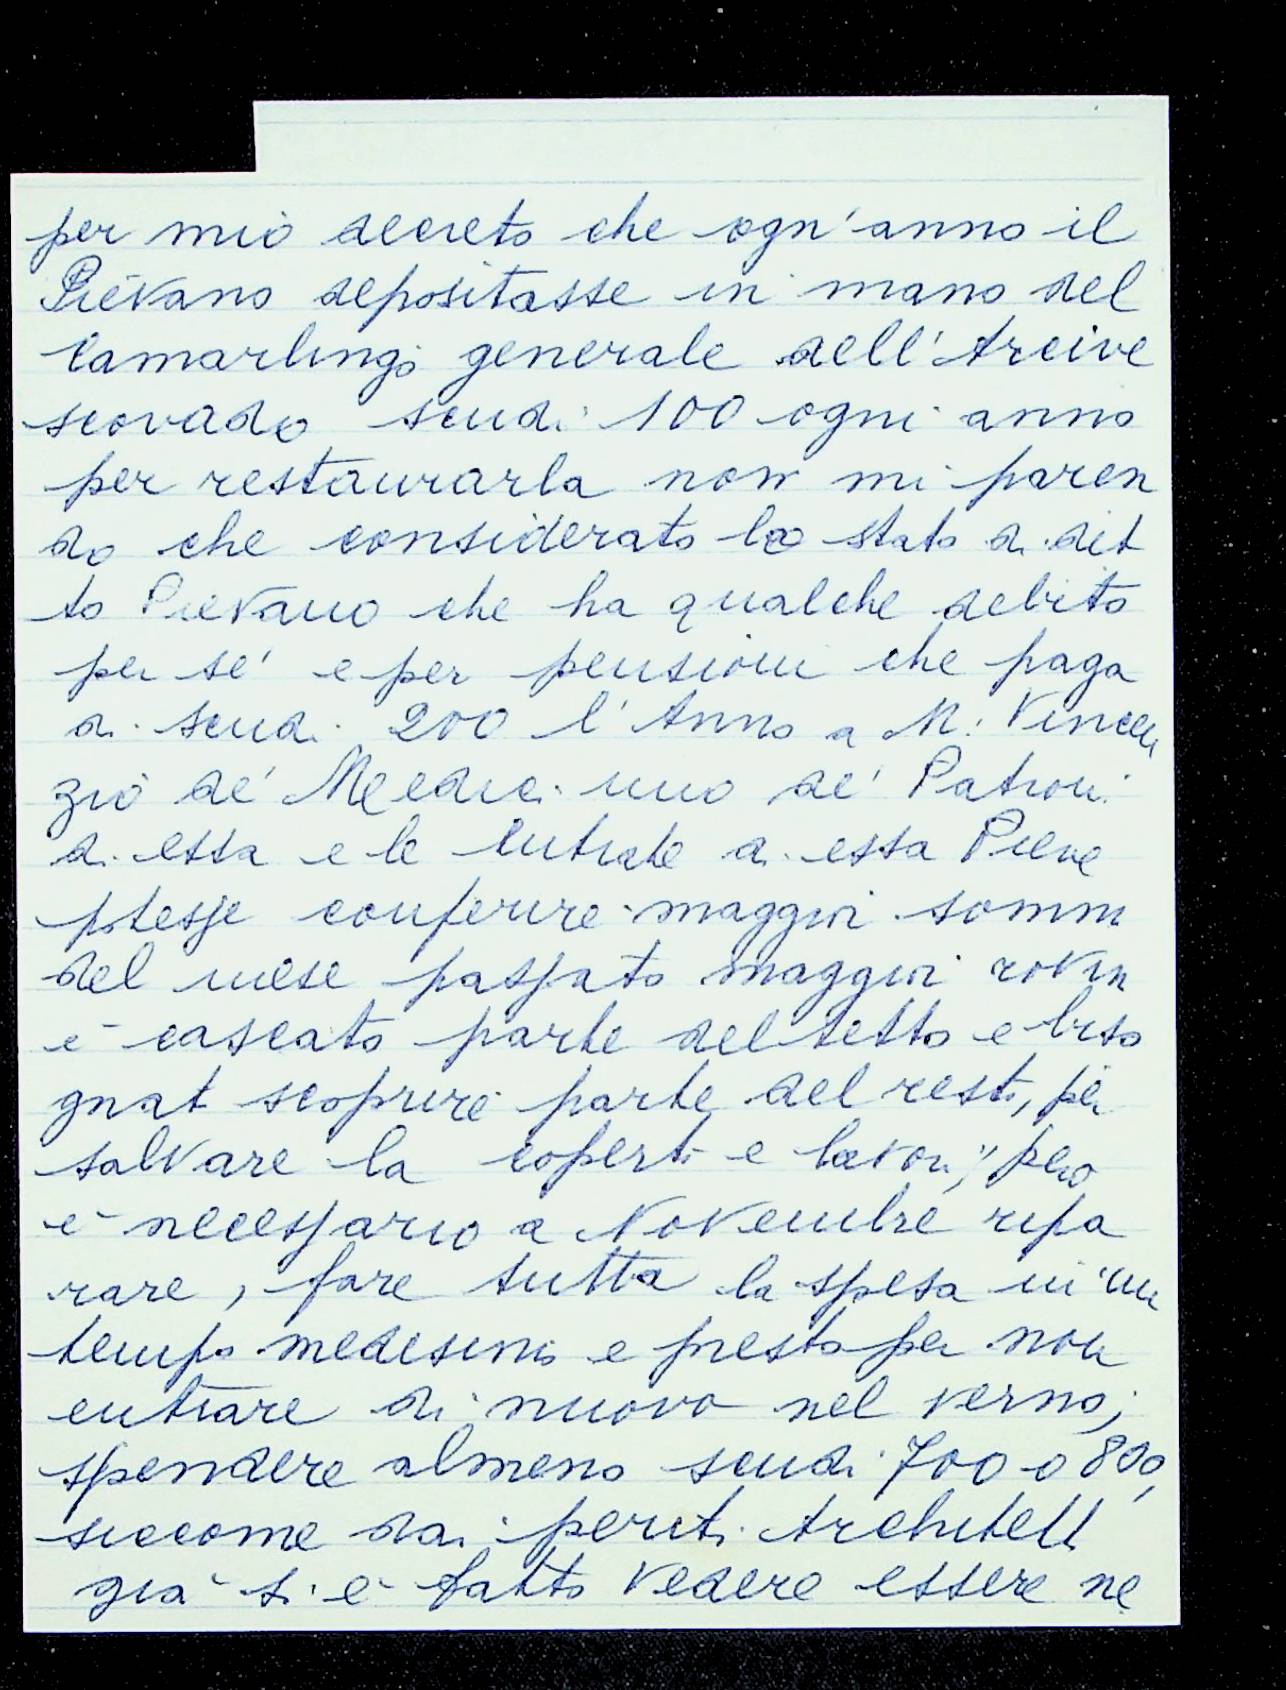 per mio decreto che ogn'anno il
Pievano depositasse in mano del
Camarlingo generale dell'Arcive
scovado scudi 100 ogni anno
per restaurarla non mi paren
do che considerato lo stato di dit
to Pievano che ha qualche debito
per sé e per pensioni che paga
di scudi 200 l'Anno a M. Vincen
zio de' Medici uno de' Patroni
di essa e le entrate di essa Pieve
potesse conferire maggior somm
del mese passato maggior rovin
è cascato parte del tetto e biso
gnat scoprire parte del resto, per
salvare la coperti e lavori; però
è necessario a Novembre ripa
rare, fare tutta la spesa in un
tempo medesimo e presto per non
entrare di nuovo nel verno;
spendere almeno scudi 700 o 800,
siccome dai periti Architett
già si è fatto vedere essere ne